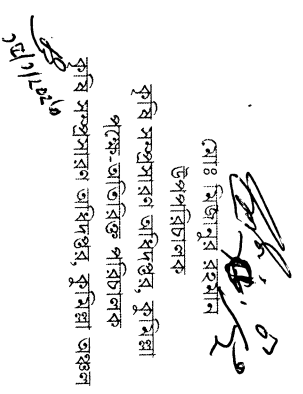 মোঃ মিজানুর রহমান
উপপরিচালক
কৃষি সম্প্রসারণ অধিদপ্তর, কুমিল্লা
পক্ষে-অতিরিক্ত পরিচালক
কৃষি সম্প্রসারণ অধিদপ্তর, কুমিল্লা অঞ্চল